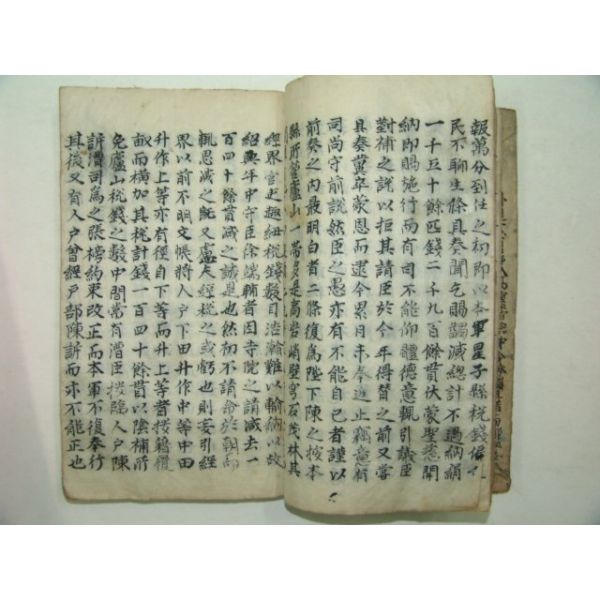 報萬分到任之初即以本軍星子縣稅錢偏
民不聊生條具奏聞乞賜蠲減總計不過納絹
一千五十餘匹錢二千九百餘貫伏蒙聖慈開
納即賜施行而有司不能仰體德意輒引議臣
對補之說以拒其請臣於今年得替之前又嘗
具奏冀卒蒙恩而遷今累月未奉進止竊意有
司尚守前說然臣之愚亦有不能自已者謹以
前奏之內最明白者二條復爲陛下陳之按本
縣所管廬山一帶多是高岩峭壁窮石茂林其
經界官吏趣紐稅錢數目浩瀚難以輸納以故
紹興年中守臣徐端輔者因寺院之請減去一
百四十餘貫減之誠是也然初不請命於朝而
輒恩減之既又盧失經稅之或虧也則委引經
界以前不明文帳將人戶下田升作中等中田
升作上等亦有徑自下等而升上等者按籍
畝而橫加其稅計錢一百四十餘貫以陰補所
免廬山稅錢之數中間嘗有漕臣按臨人戶陳
訴漕司爲之張榜約束改正而本軍不復奉行
其後又有人戶曾經戶部陳訴而亦不能正也